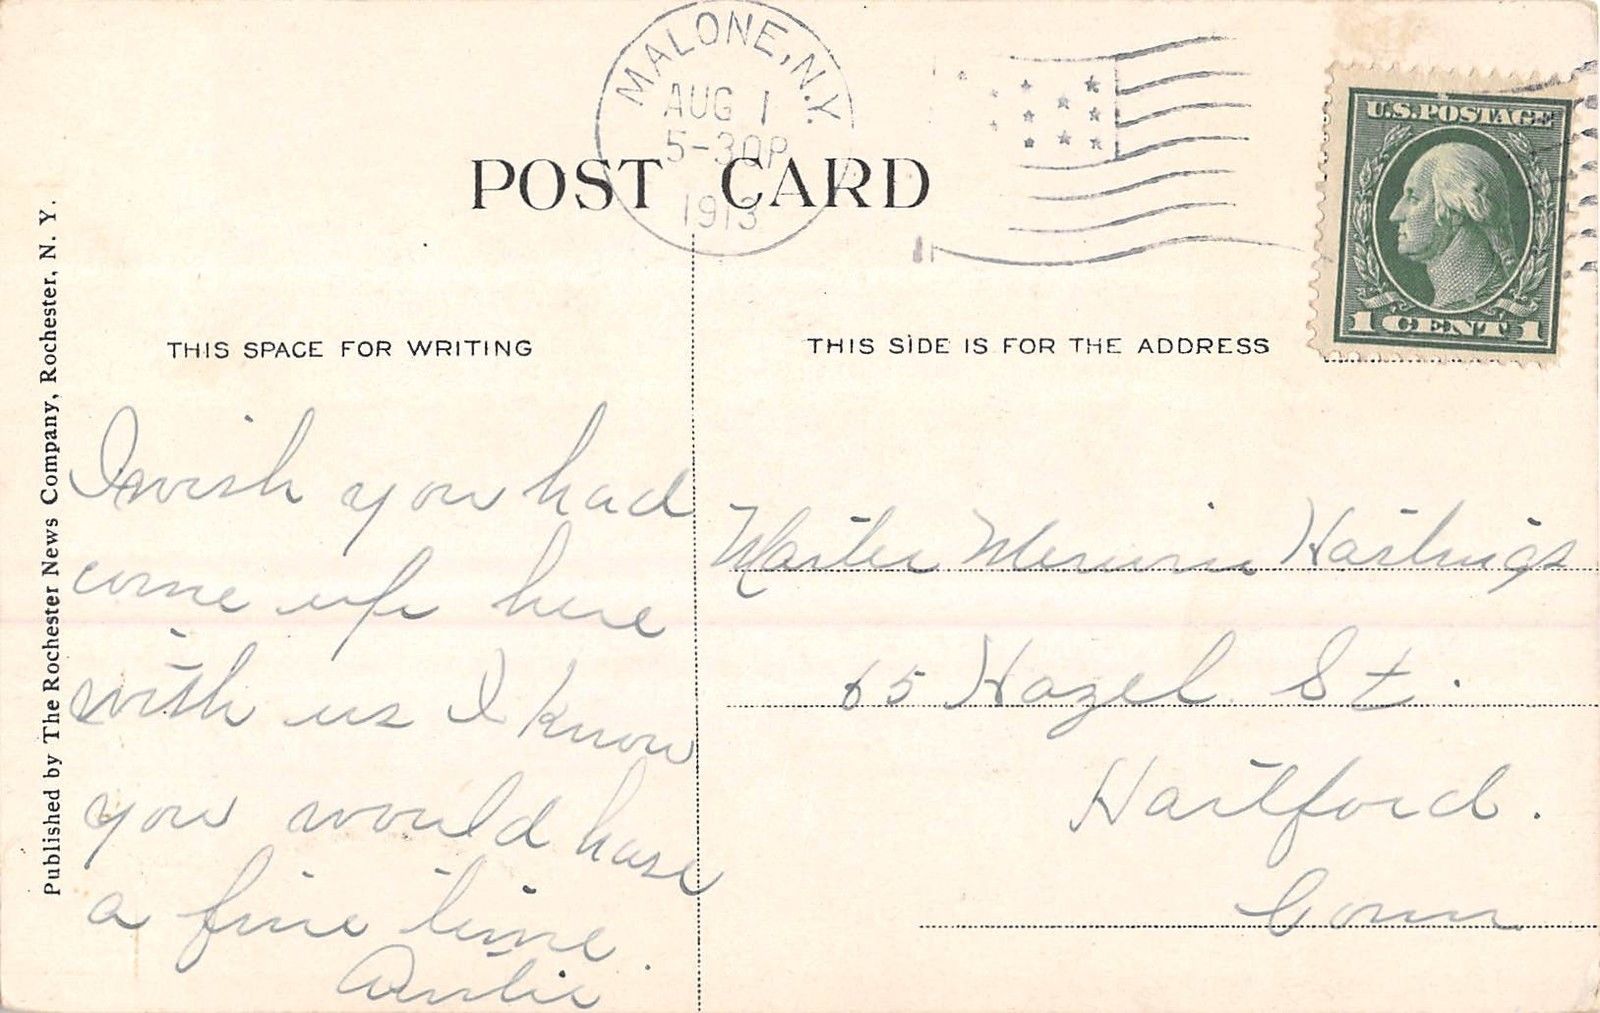 MALONE, N.Y.
AUG 1
5-30P
1913
U.S. POSTAGE
1 CENT 1
POST CARD
THIS SPACE FOR WRITING
THIS SIDE IS FOR THE ADDRESS
Published by The Rochester News Company, Rochester, N. Y.
I wish you had
come up here
with us I know
you would have
a fine time.
Auntie
Master Merwin Hastings
65 Hazel St.
Hartford.
Conn